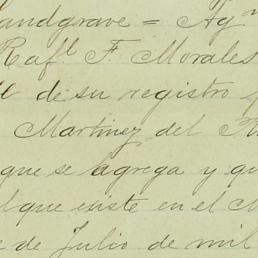 andgrave = Ag
Raf.l F. Morales
de su registro
Martinez del
que se agrega y qu
que existe en el
de Julio de mil